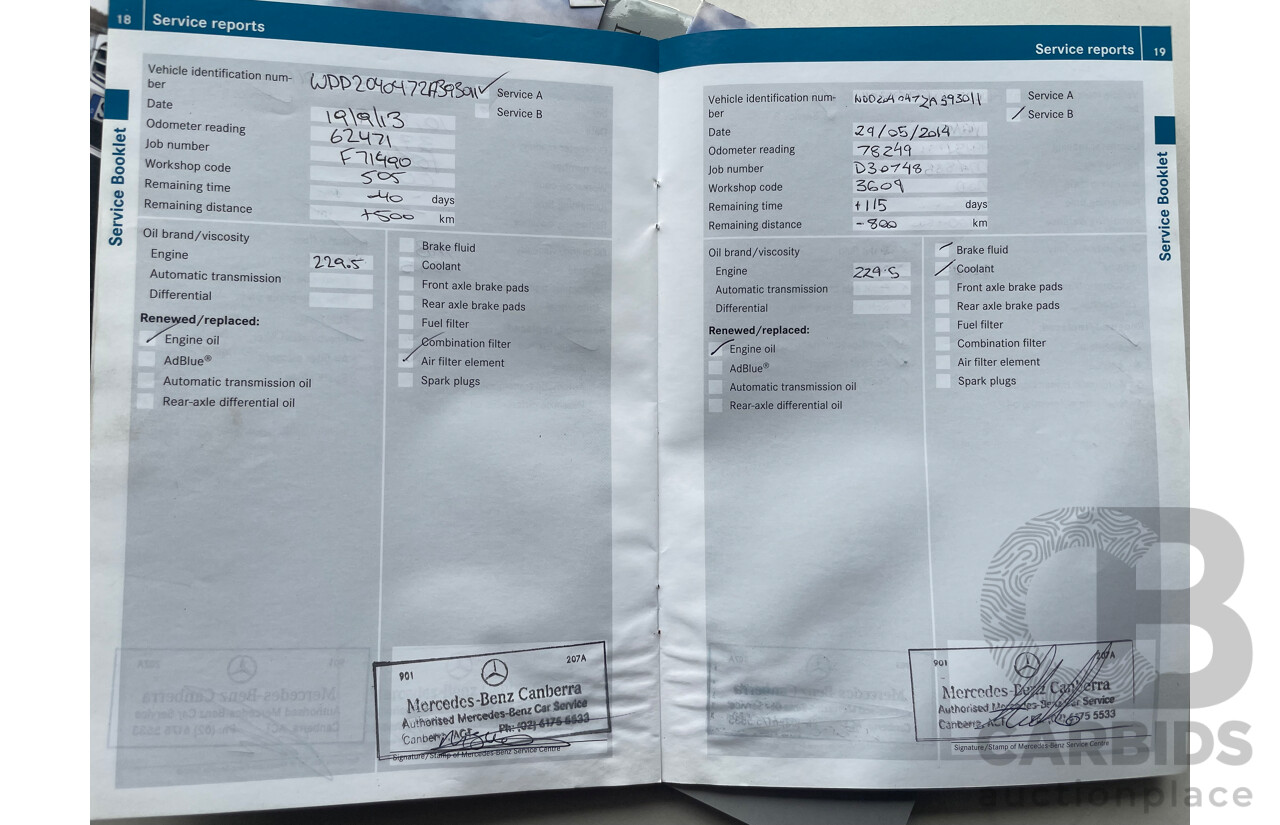 18 Service reports
Vehicle identification num-
ber
WDD2040472A393011
Service A
Service B
Date 19/9/13
Odometer reading 62471
Job number F71490
Workshop code 505
Remaining time -40 days
Remaining distance +500 km
Oil brand/viscosity
Engine 229.5
Automatic transmission
Differential
Renewed/replaced:
Engine oil
AdBlue®
Automatic transmission oil
Rear-axle differential oil
Brake fluid
Coolant
Front axle brake pads
Rear axle brake pads
Fuel filter
Combination filter
Air filter element
Spark plugs
901 207A
Mercedes-Benz Canberra
Authorised Mercedes-Benz Car Service
Canberra ACT Ph: (02) 6175 5533
Signature/Stamp of Mercedes-Benz Service Centre
Service Booklet
Service reports 19
Vehicle identification num-
ber
WDD2040472A393011
Service A
Service B
Date 29/05/2014
Odometer reading 78249
Job number D30748
Workshop code 3609
Remaining time +115 days
Remaining distance -800 km
Oil brand/viscosity
Engine 229.5
Automatic transmission
Differential
Renewed/replaced:
Engine oil
AdBlue®
Automatic transmission oil
Rear-axle differential oil
Brake fluid
Coolant
Front axle brake pads
Rear axle brake pads
Fuel filter
Combination filter
Air filter element
Spark plugs
901 207A
Mercedes-Benz Canberra
Authorised Mercedes-Benz Car Service
Canberra 6175 5533
Signature/Stamp of Mercedes-Benz Service Centre
Service Booklet
CARBIDS
auctionplace